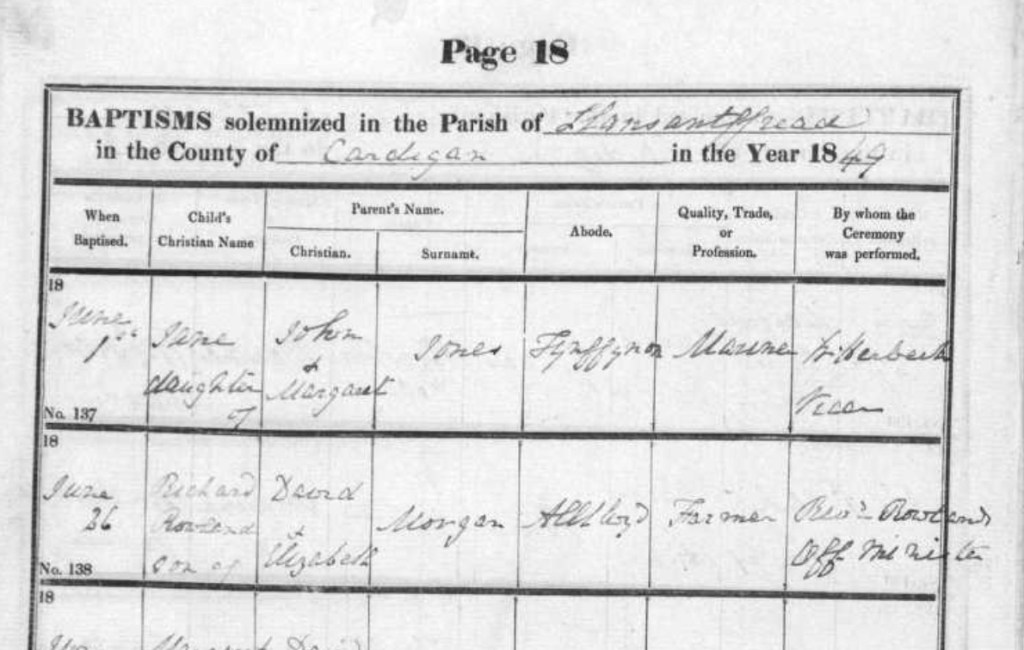 Page 18
BAPTISMS solemnized in the Parish of Llansantffread
in the County of Cardigan in the Year 1849
When Baptised.
Child's Christian Name
Parent's Name.
Christian.
Surname.
Abode.
Quality, Trade, or Profession.
By whom the Ceremony was performed.
18
June 1st
Jane
daughter
of
John
&
Margaret
Jones
Fynffynon
Mariner
Herbert
Vicar
No. 137
18
June
26
Richard
Rowland
son of
David
&
Elizabeth
Morgan
Alltlwyd
Farmer
Revd. Rowlands
Off Minister
No. 138
18
Margaret
David